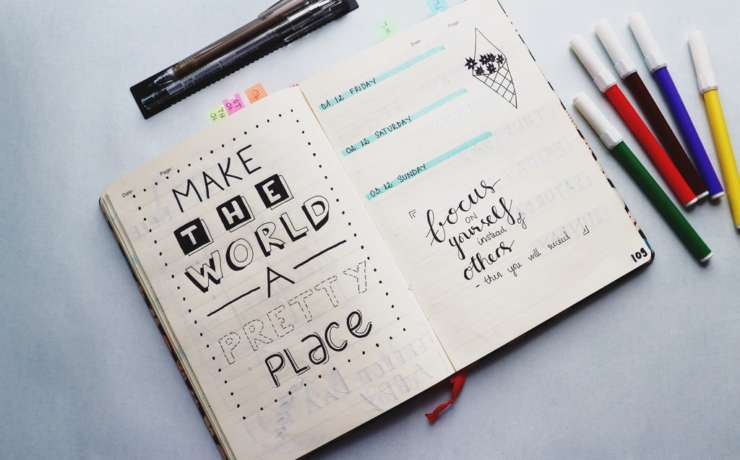 Date: Page:
MAKE
THE
WORLD
A
PRETTY
PLACE
Date: Page:
01 12 FRIDAY
02 12 SATURDAY
03 12 SUNDAY
focus
on
yourself
instead of
others
- then you will succeed
109